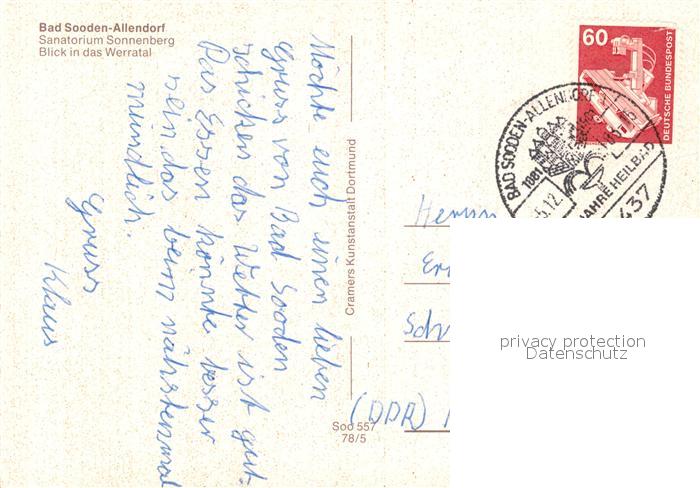 Bad Sooden-Allendorf
Sanatorium Sonnenberg
Blick in das Werratal
Möchte euch einen lieben
Gruss von Bad Sooden
schicken das Wetter ist gut
Das Essen könnte besser
sein, das beim nähstenmal
mündlich.
Gruss
Klaus
Cramers Kunstanstalt Dortmund
Soo 557
78/5
60
DEUTSCHE BUNDESPOST
BAD SOODEN-ALLENDORF
1881
JAHRE HEILBAD
437
Herrn
Er
Sch
(DDR)
privacy protection
Datenschutz